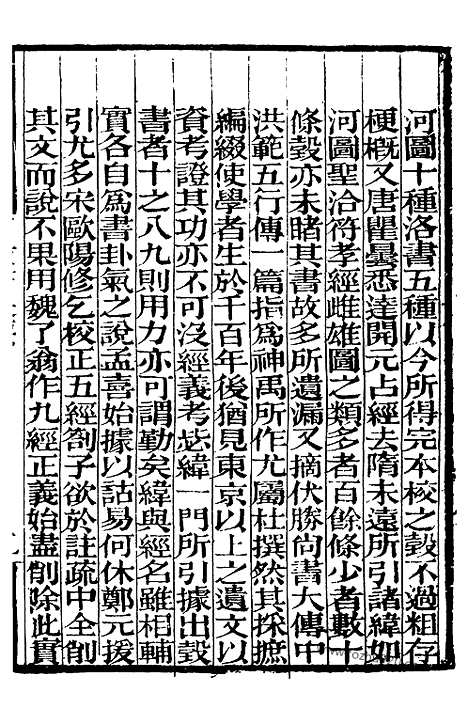 河圖十種洛書五種以今所得完本校之瑴不過粗存
梗概又唐瞿曇悉達開元占經去隋未遠所引諸緯如
河圖聖洽符孝經雌雄圖之類多者百餘條少者數十
條瑴亦未睹其書故多所遺漏又摘伏勝尙書大傳中
洪範五行傳一篇指爲神禹所作尤屬杜撰然其採摭
編綴使學者生於千百年後猶見東京以上之遺文以
資考證其功亦不可沒經義考毖緯一門所引據出瑴
書者十之八九則用力亦可謂勤矣緯與經名雖相輔
實各自爲書卦氣之說孟喜始據以詁易何休鄭元援
引尤多宋歐陽修乞校正五經劄子欲於註疏中全削
其文而說不果用魏了翁作九經正義始盡削除此實